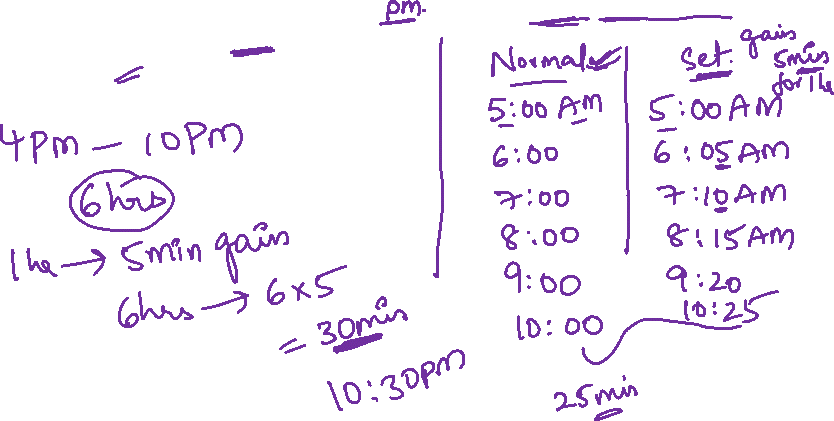 pm.
4pm - 10pm
6hrs
1hr → 5min gain
6hrs → 6x5
= 30min
10:30pm
Normal Set. gain 5min for 1hr
5:00 AM 5:00 AM
6:00 6:05 AM
7:00 7:10 AM
8:00 8:15 AM
9:00 9:20
10:00 10:25
25min